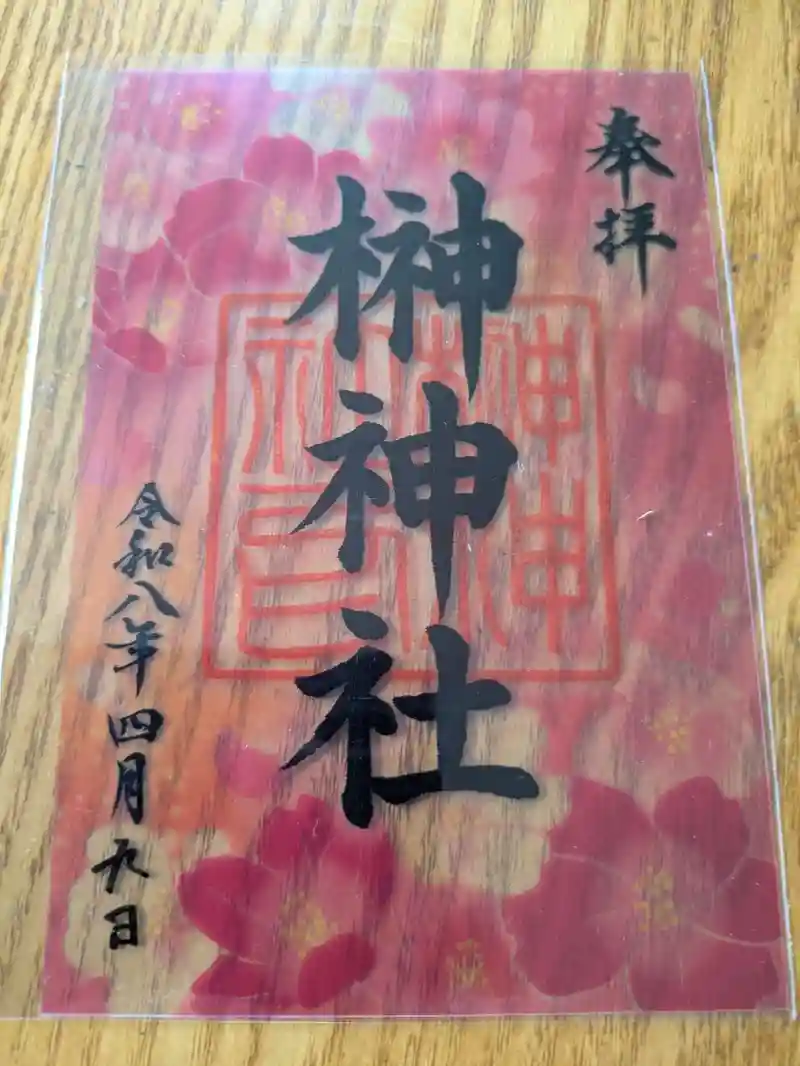 奉拝
榊神社
榊神社印
令和八年四月九日